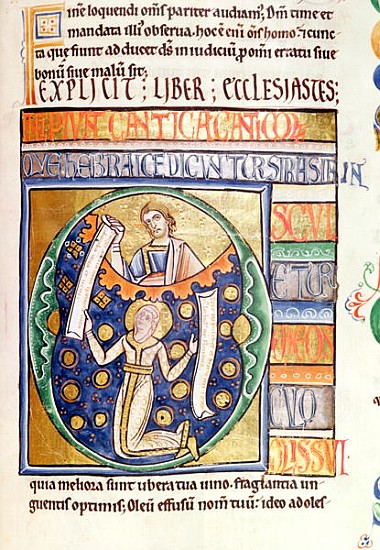 Finē loquendi om̄s pariter audiam'. Dm̄ time et
mandata illi' obserua, hoc ē enī om̄s homo: ⁊ cunc
ta que fiunt adducet ds̄ in iudiciū ꝓ om̄i erratu siue
bonū siue malū sit;
EXPLICIT: LIBER; ECCLESIASTES;
INCIPIVNT CANTICA CANTICOR
QVE HEBRAICE DICVNTVR SIRASIRIN
O
SCVL
ETVR
ME OS
CVLO
ORIS SVI
quia meliora sunt ubera tua uino. fraglantia un
guentis optimis; Oleū effusū nom̄ tuū: ideo adoles